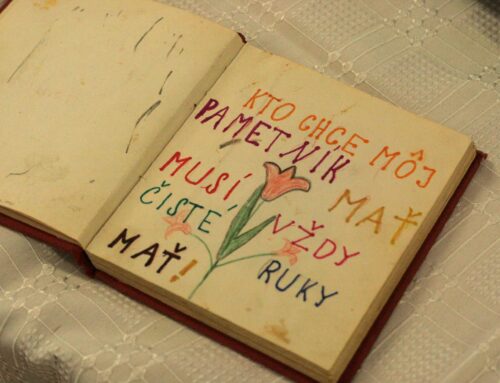 KTO CHCE MÔJ
PAMETNÍK MAŤ
MUSÍ VŽDY
ČISTÉ RUKY
MAŤ!